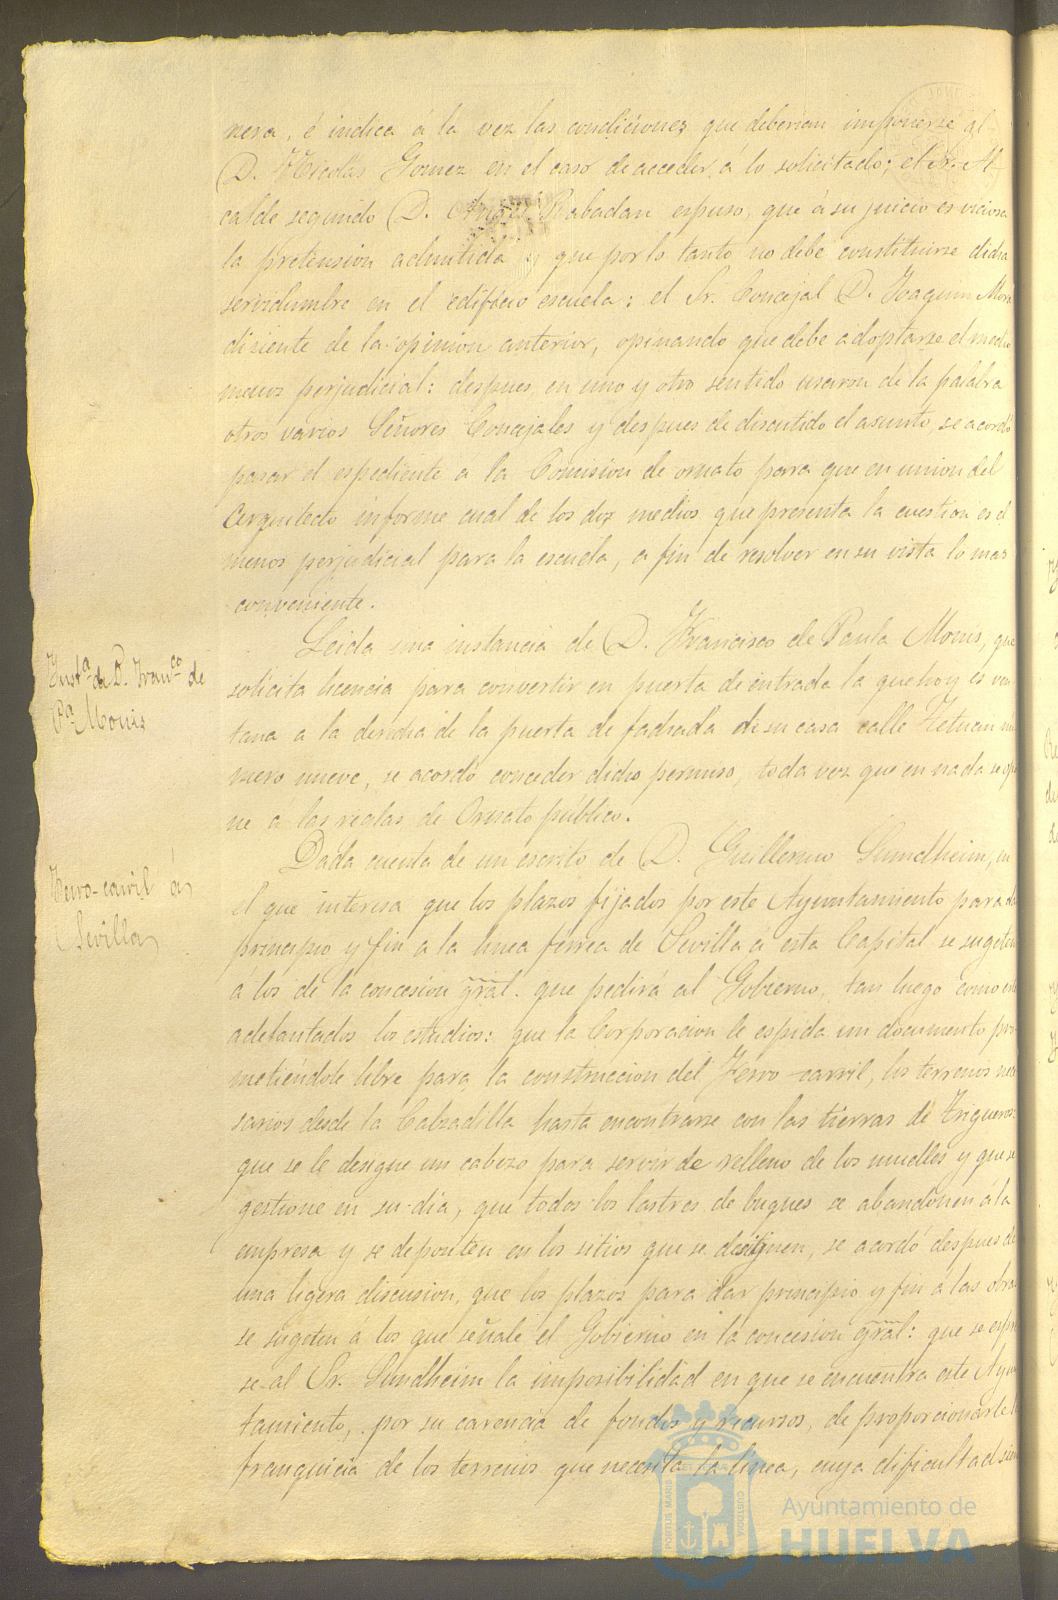 nera, é indica á la vez las condiciones que deberian imponerse al
D. Nicolás Gomez en el caso de acceder á lo solicitado; el Sr. Al-
calde segundo D. Rabadan espuso, que á su juicio es viciosa
la pretension admitida y que por lo tanto no debe constituirse dicha
servidumbre en el edificio escuela: el Sr. Concejal D. Joaquin Mora
disiente de la opinion anterior, opinando que debe adoptarse el medio
menos perjudicial: despues, en uno y otro sentido usaron de la palabra
otros varios Señores Concejales y despues de discutido el asunto, se acordó
pasar el espediente á la Comision de ornato para que en union del
Arquitecto informe cual de los dos medios que presenta la cuestion es el
menos perjudicial para la escuela, a fin de resolver en su vista lo mas
conveniente.
Inst.ª de D. Fran.co de
P.ª Monis
Leida una instancia de D. Francisco de Paula Monis, que
solicita licencia para convertir en puerta de entrada la que hoy es ven
tana a la derecha de la puerta de fachada de su casa calle Tetuan nu
mero nueve, se acordó conceder dicho permiso, toda vez que en nada se opo
ne a las reglas de Ornato público.
Ferro-carril á
Sevilla
Dada cuenta de un escrito de D. Guillermo Sundheim, en
el que interesa que los plazos fijados por este Ayuntamiento para dar
principio y fin a la linea ferrea de Sevilla á esta Capital se sugeten
á los de la concesion gral. que pedirá al Gobierno, tan luego como esten
adelantados los estudios: que la Corporacion le espida un documento pro
metiéndole libre para la construccion del Ferro-carril, los terrenos nece
sarios desde la Calzadilla hasta encontrarse con las tierras de Trigueros:
que se le designe un cabezo para servir de relleno de los muelles y que se
gestione en su dia, que todos los lastres de buques se abandonen á la
empresa y se depositen en los sitios que se designen, se acordó despues de
una ligera discusion, que los plazos para dar principio y fin á las obras
se sugeten á los que señale el Gobierno en la concesion gral: que se espre
se al Sr. Sundheim la imposibilidad en que se encuentra este Ayun
tamiento, por su carencia de fondos y recursos, de proporcionarle la
franquicia de los terrenos que necesita la linea, cuya dificultad
PORTUS MARIS
CUSTODIA
Ayuntamiento de
HUELVA